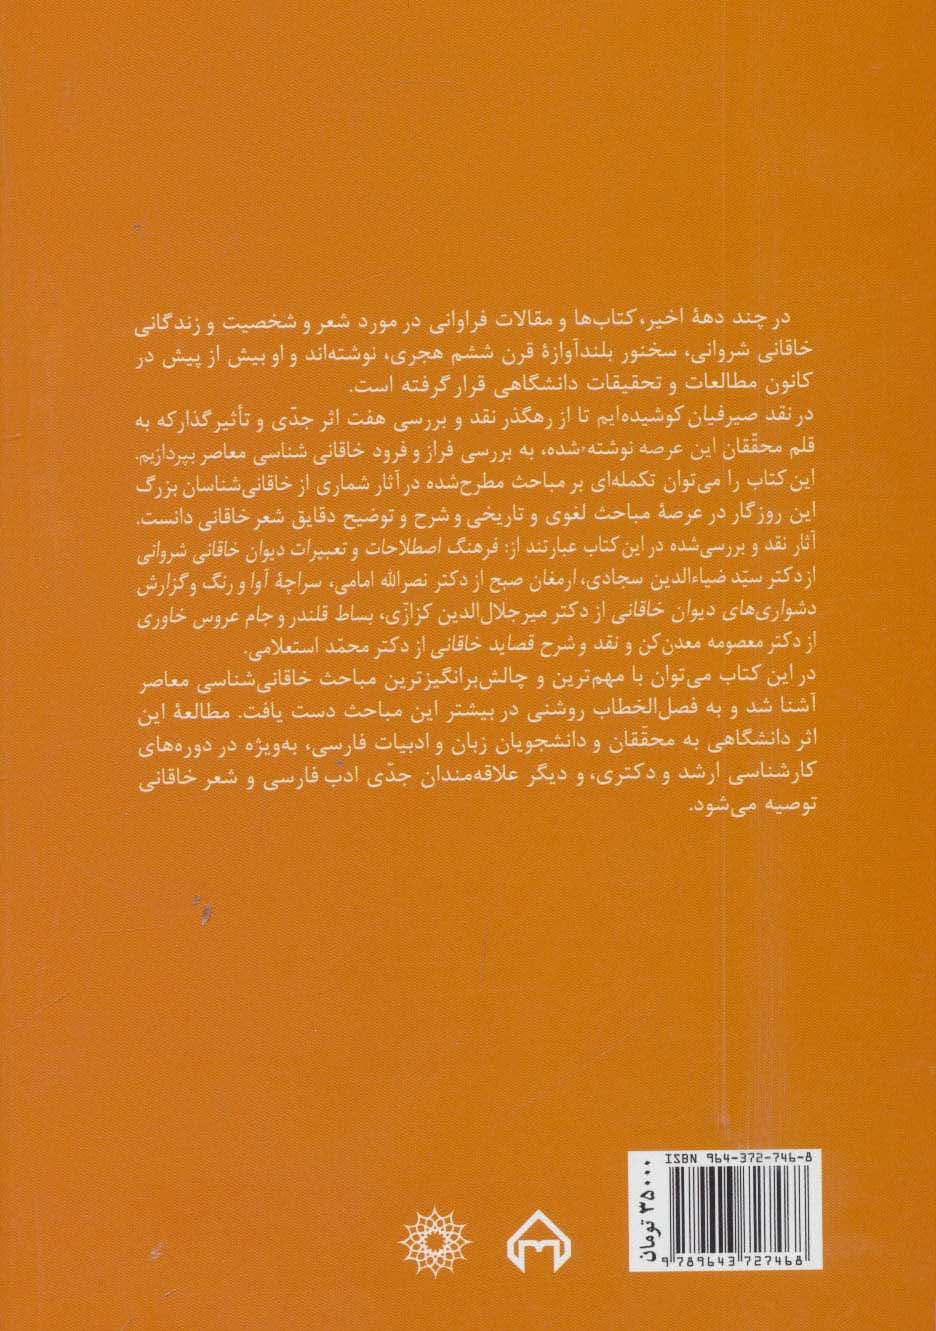 در چند دههٔ اخیر، کتاب‌ها و مقالات فراوانی در مورد شعر و شخصیت و زندگانی
خاقانی شروانی، سخنور بلندآوازهٔ قرن ششم هجری، نوشته‌اند و او بیش از پیش در
کانون مطالعات و تحقیقات دانشگاهی قرار گرفته است.
در نقد صیرفیان کوشیده‌ایم تا از رهگذر نقد و بررسی هفت اثر جدّی و تأثیرگذار که به
قلم محقّقان این عرصه نوشته شده، به بررسی فراز و فرود خاقانی شناسی معاصر بپردازیم.
این کتاب را می‌توان تکمله‌ای بر مباحث مطرح‌شده در آثار شماری از خاقانی‌شناسان بزرگ
این روزگار در عرصهٔ مباحث لغوی و تاریخی و شرح و توضیح دقایق شعر خاقانی دانست.
آثار نقد و بررسی‌شده در این کتاب عبارتند از: فرهنگ اصطلاحات و تعبیرات دیوان خاقانی شروانی
از دکتر سیّد ضیاءالدین سجادی، ارمغان صبح از دکتر نصرالله امامی، سراچهٔ آوا و رنگ و گزارش
دشواری‌های دیوان خاقانی از دکتر میرجلال‌الدین کزازی، بساط قلندر و جام عروس خاوری
از دکتر معصومه معدن‌کن و نقد و شرح قصاید خاقانی از دکتر محمّد استعلامی.
در این کتاب می‌توان با مهم‌ترین و چالش‌برانگیزترین مباحث خاقانی‌شناسی معاصر
آشنا شد و به فصل‌الخطاب روشنی در بیشتر این مباحث دست یافت. مطالعهٔ این
اثر دانشگاهی به محقّقان و دانشجویان زبان و ادبیات فارسی، به‌ویژه در دوره‌های
کارشناسی ارشد و دکتری، و دیگر علاقه‌مندان جدّی ادب فارسی و شعر خاقانی
توصیه می‌شود.
ISBN 964-372-746-8
۳۵۰۰۰ تومان
9 789643 727468